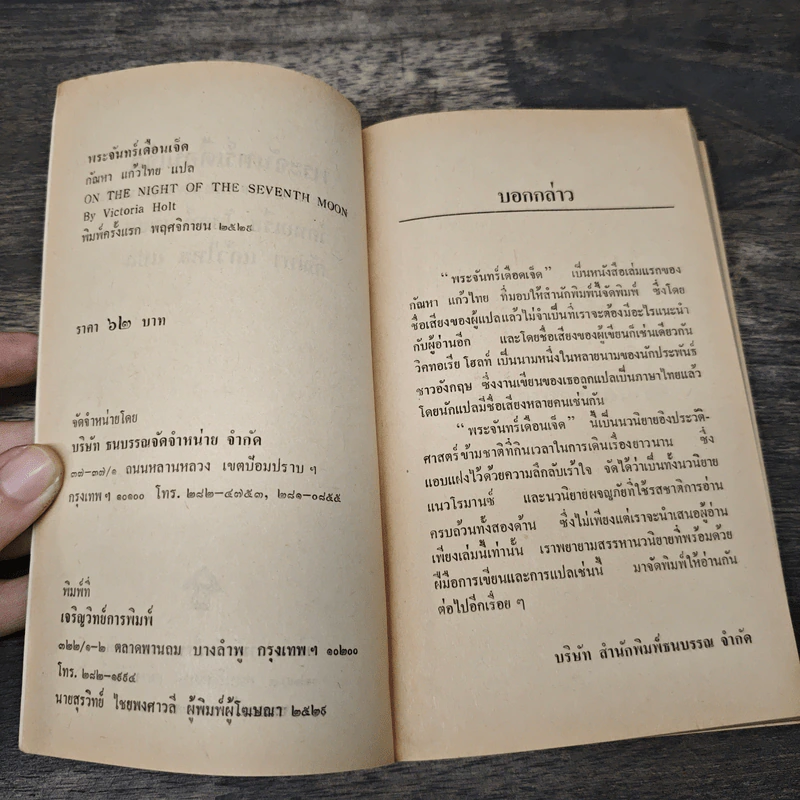 พระจันทร์เดือนเจ็ด
กัณหา แก้วไทย แปล
ON THE NIGHT OF THE SEVENTH MOON
By Victoria Holt
พิมพ์ครั้งแรก พฤศจิกายน ๒๕๒๙
ราคา ๖๒ บาท
จัดจำหน่ายโดย
บริษัท ธนบรรณจัดจำหน่าย จำกัด
๓๗-๓๗/๑ ถนนหลานหลวง เขตป้อมปราบ ฯ
กรุงเทพ ฯ ๑๐๑๐๐ โทร. ๒๘๒-๔๗๕๓, ๒๘๑-๐๘๕๕
พิมพ์ที่
เจริญวิทย์การพิมพ์
๓๒๒/๑-๒ ตลาดพานถม บางลำพู กรุงเทพ ฯ ๑๐๒๐๐
โทร. ๒๘๒-๑๙๙๔
นายสุรวิทย์ ไชยพงศาวลี ผู้พิมพ์ผู้โฆษณา ๒๕๒๙
บอกกล่าว
“พระจันทร์เดือดเจ็ด” เป็นหนังสือเล่มแรกของ
กัณหา แก้วไทย ที่มอบให้สำนักพิมพ์นี้จัดพิมพ์ ซึ่งโดย
ชื่อเสียงของผู้แปลแล้วไม่จำเป็นที่เราจะต้องมีอะไรแนะนำ
กับผู้อ่านอีก และโดยชื่อเสียงของผู้เขียนก็เช่นเดียวกัน
วิคทอเรีย โฮลท์ เป็นนามหนึ่งในหลายนามของนักประพันธ์
ชาวอังกฤษ ซึ่งงานเขียนของเธอถูกแปลเป็นภาษาไทยแล้ว
โดยนักแปลมีชื่อเสียงหลายคนเช่นกัน
“พระจันทร์เดือนเจ็ด” นี้เป็นนวนิยายอิงประวัติ-
ศาสตร์ข้ามชาติที่กินเวลาในการเดินเรื่องยาวนาน ซึ่ง
แอบแฝงไว้ด้วยความลึกลับเร้าใจ จัดได้ว่าเป็นทั้งนวนิยาย
แนวโรมานซ์ และนวนิยายผจญภัยที่ใช้รสชาติการอ่าน
ครบล้วนทั้งสองด้าน ซึ่งไม่เพียงแต่เราจะนำเสนอผู้อ่าน
เพียงเล่มนี้เท่านั้น เราพยายามสรรหานวนิยายที่พร้อมด้วย
ฝีมือการเขียนและการแปลเช่นนี้ มาจัดพิมพ์ให้อ่านกัน
ต่อไปอีกเรื่อย ๆ
บริษัท สำนักพิมพ์ธนบรรณ จำกัด